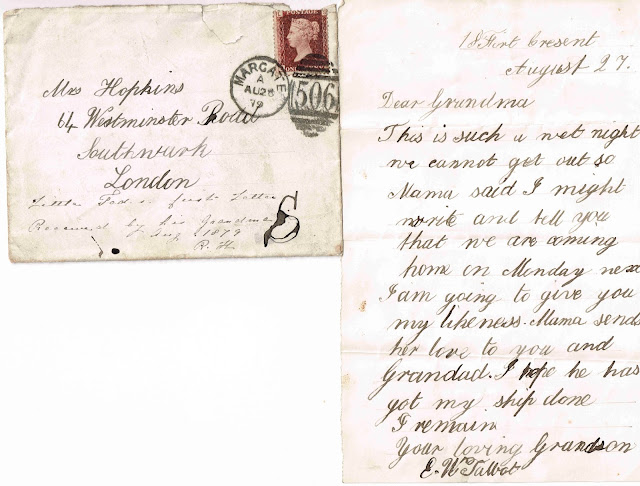 POSTAGE
ONE
MARGATE
A
AU28
79
506
Mrs Hopkins
64 Westminster Road
Southwark
London
Little Ted's first Letter
Received by his Grandma
Aug 1879
R. H.
S
18 Fort Cresent
August 27.
Dear Grandma
This is such a wet night
we cannot get out so
Mama said I might
write and tell you
that we are coming
home on Monday next
I am going to give you
my likeness. Mama sends
her love to you and
Grandad. I hope he has
got my ship done
I remain
Your loving Grandson
E. Wm Talbot